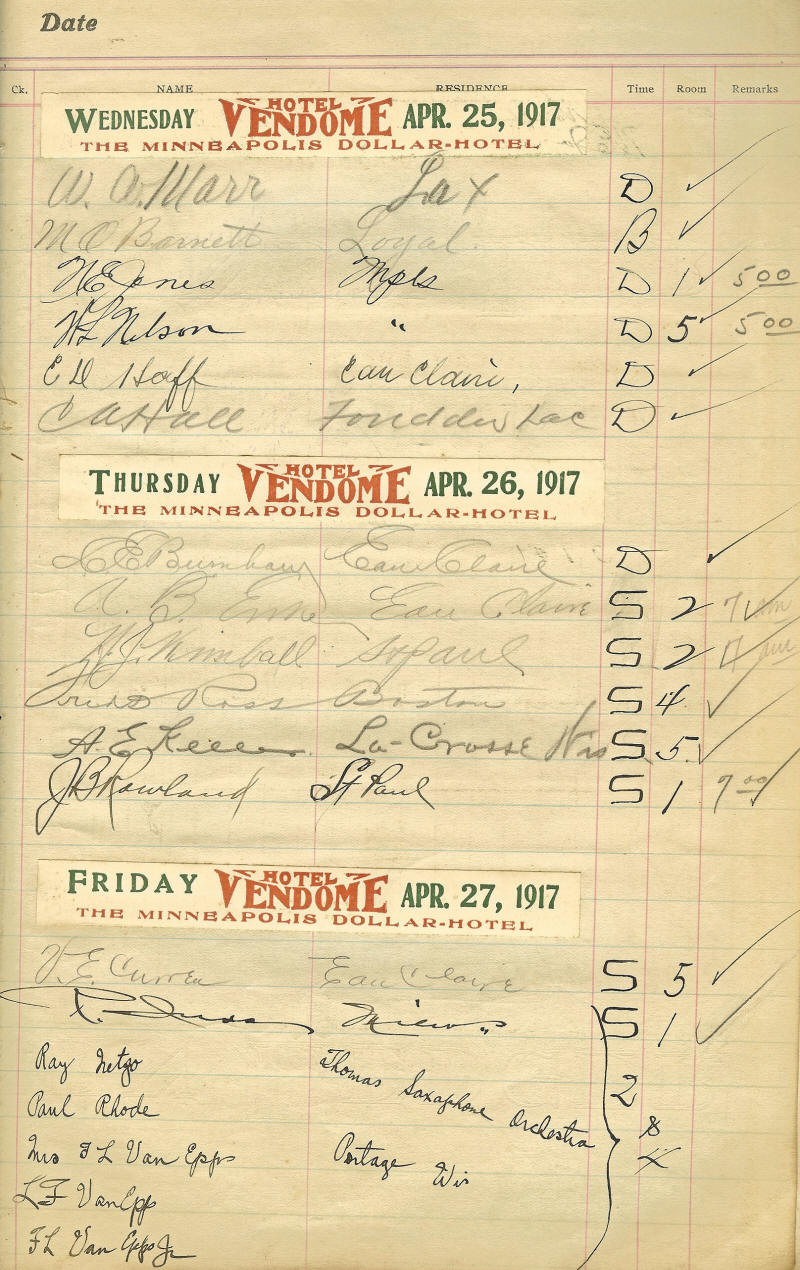 Date
Ck. NAME RESIDENCE Time Room Remarks
WEDNESDAY HOTEL VENDOME APR. 25, 1917
THE MINNEAPOLIS DOLLAR-HOTEL
W. W. Marr Lax D ✓
M O Barnett Loyal. B ✓
N E Jones Mpls D 1 ✓ 5 00
H L Nelson " D 5 ✓ 5 00
E D Hoff Eau Claire, D ✓
C A Hall Fond du Lac D ✓
THURSDAY HOTEL VENDOME APR. 26, 1917
THE MINNEAPOLIS DOLLAR-HOTEL
Burnham Eau Claire D ✓
A. B. Eau Claire S 2 7 ✓
H. J. Kimball St Paul S 2 7
Ross Boston S 4 ✓
A. E. La-Crosse Wis S 5 ✓
J B Rowland St Paul S 1 7 00 ✓
FRIDAY HOTEL VENDOME APR. 27, 1917
THE MINNEAPOLIS DOLLAR-HOTEL
V. E. Curren Eau Claire S 5 ✓
S 1 ✓
Ray Netzo Thomas Saxaphone Orchestra 2
Paul Rhode
Mrs F L Van Epps Portage Wis 4
L F Van Epp
F L Van Epps Jr